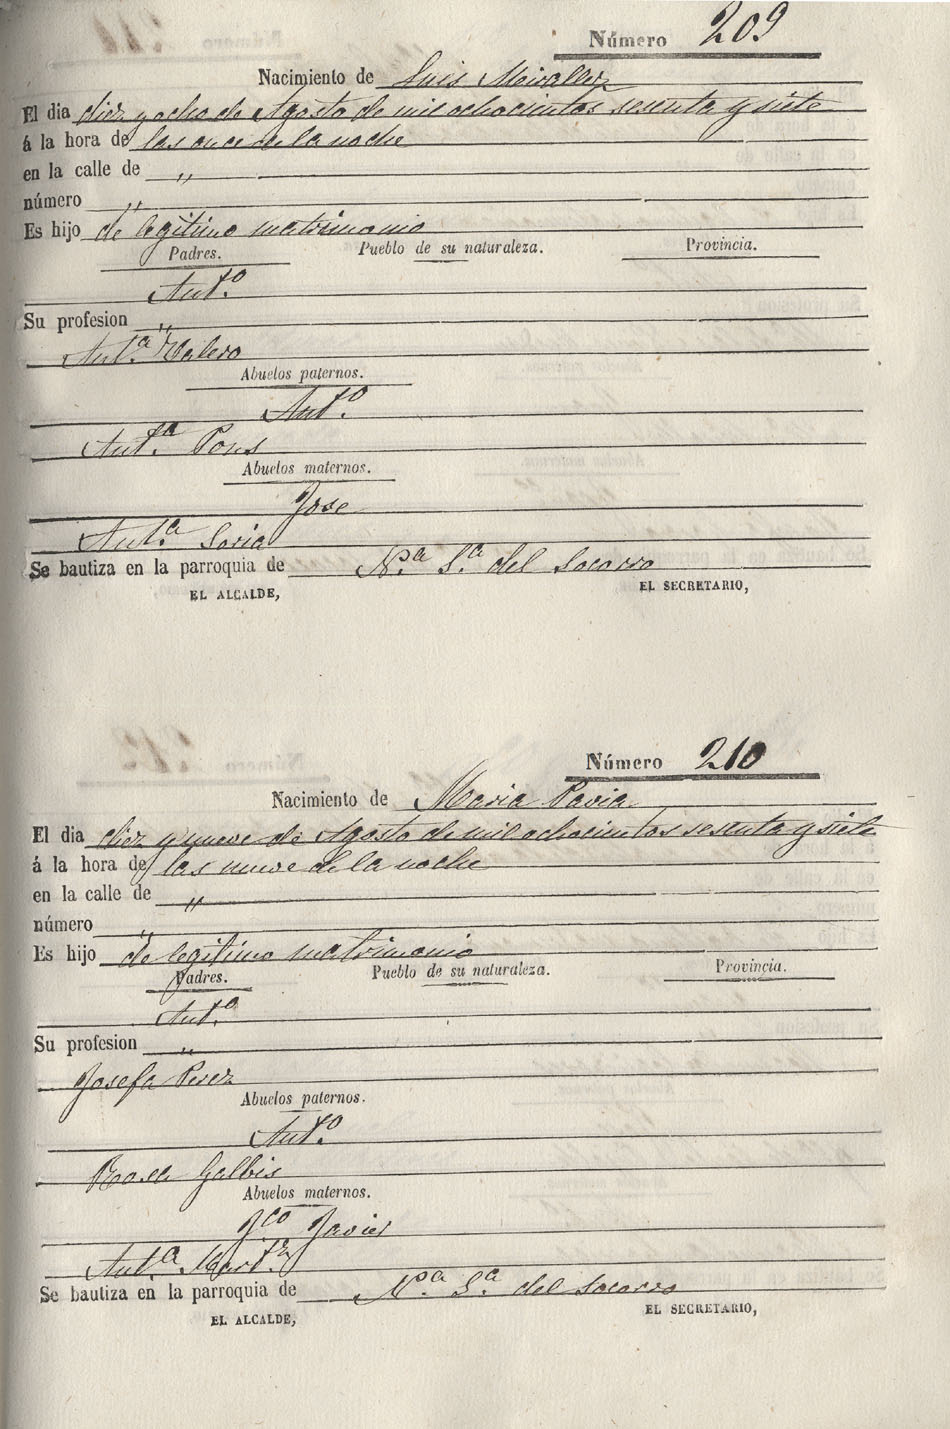 Número 209
Nacimiento de Luis Miralles
El dia diez y ocho de Agosto de mil ochocientos sesenta y siete
á la hora de las once de la noche
en la calle de "
número "
Es hijo de legitimo matrimonio
Padres. Pueblo de su naturaleza. Provincia.
Ant.º
Su profesion "
Ant.ª Valero
Abuelos paternos.
Ant.º
Ant.ª Pons
Abuelos maternos.
Jose
Ant.ª Soria
Se bautiza en la parroquia de N.ª S.ª del Socorro
EL ALCALDE, EL SECRETARIO,
Número 210
Nacimiento de Maria Pavia
El dia diez y nueve de Agosto de mil ochocientos sesenta y siete
á la hora de las nueve de la noche
en la calle de "
número "
Es hijo de legitimo matrimonio
Padres. Pueblo de su naturaleza. Provincia.
Ant.º
Su profesion "
Josefa Perez
Abuelos paternos.
Ant.º
Rosa Galbis
Abuelos maternos.
Fco Javier
Ant.ª Mart.z
Se bautiza en la parroquia de N.ª S.ª del Socorro
EL ALCALDE, EL SECRETARIO,